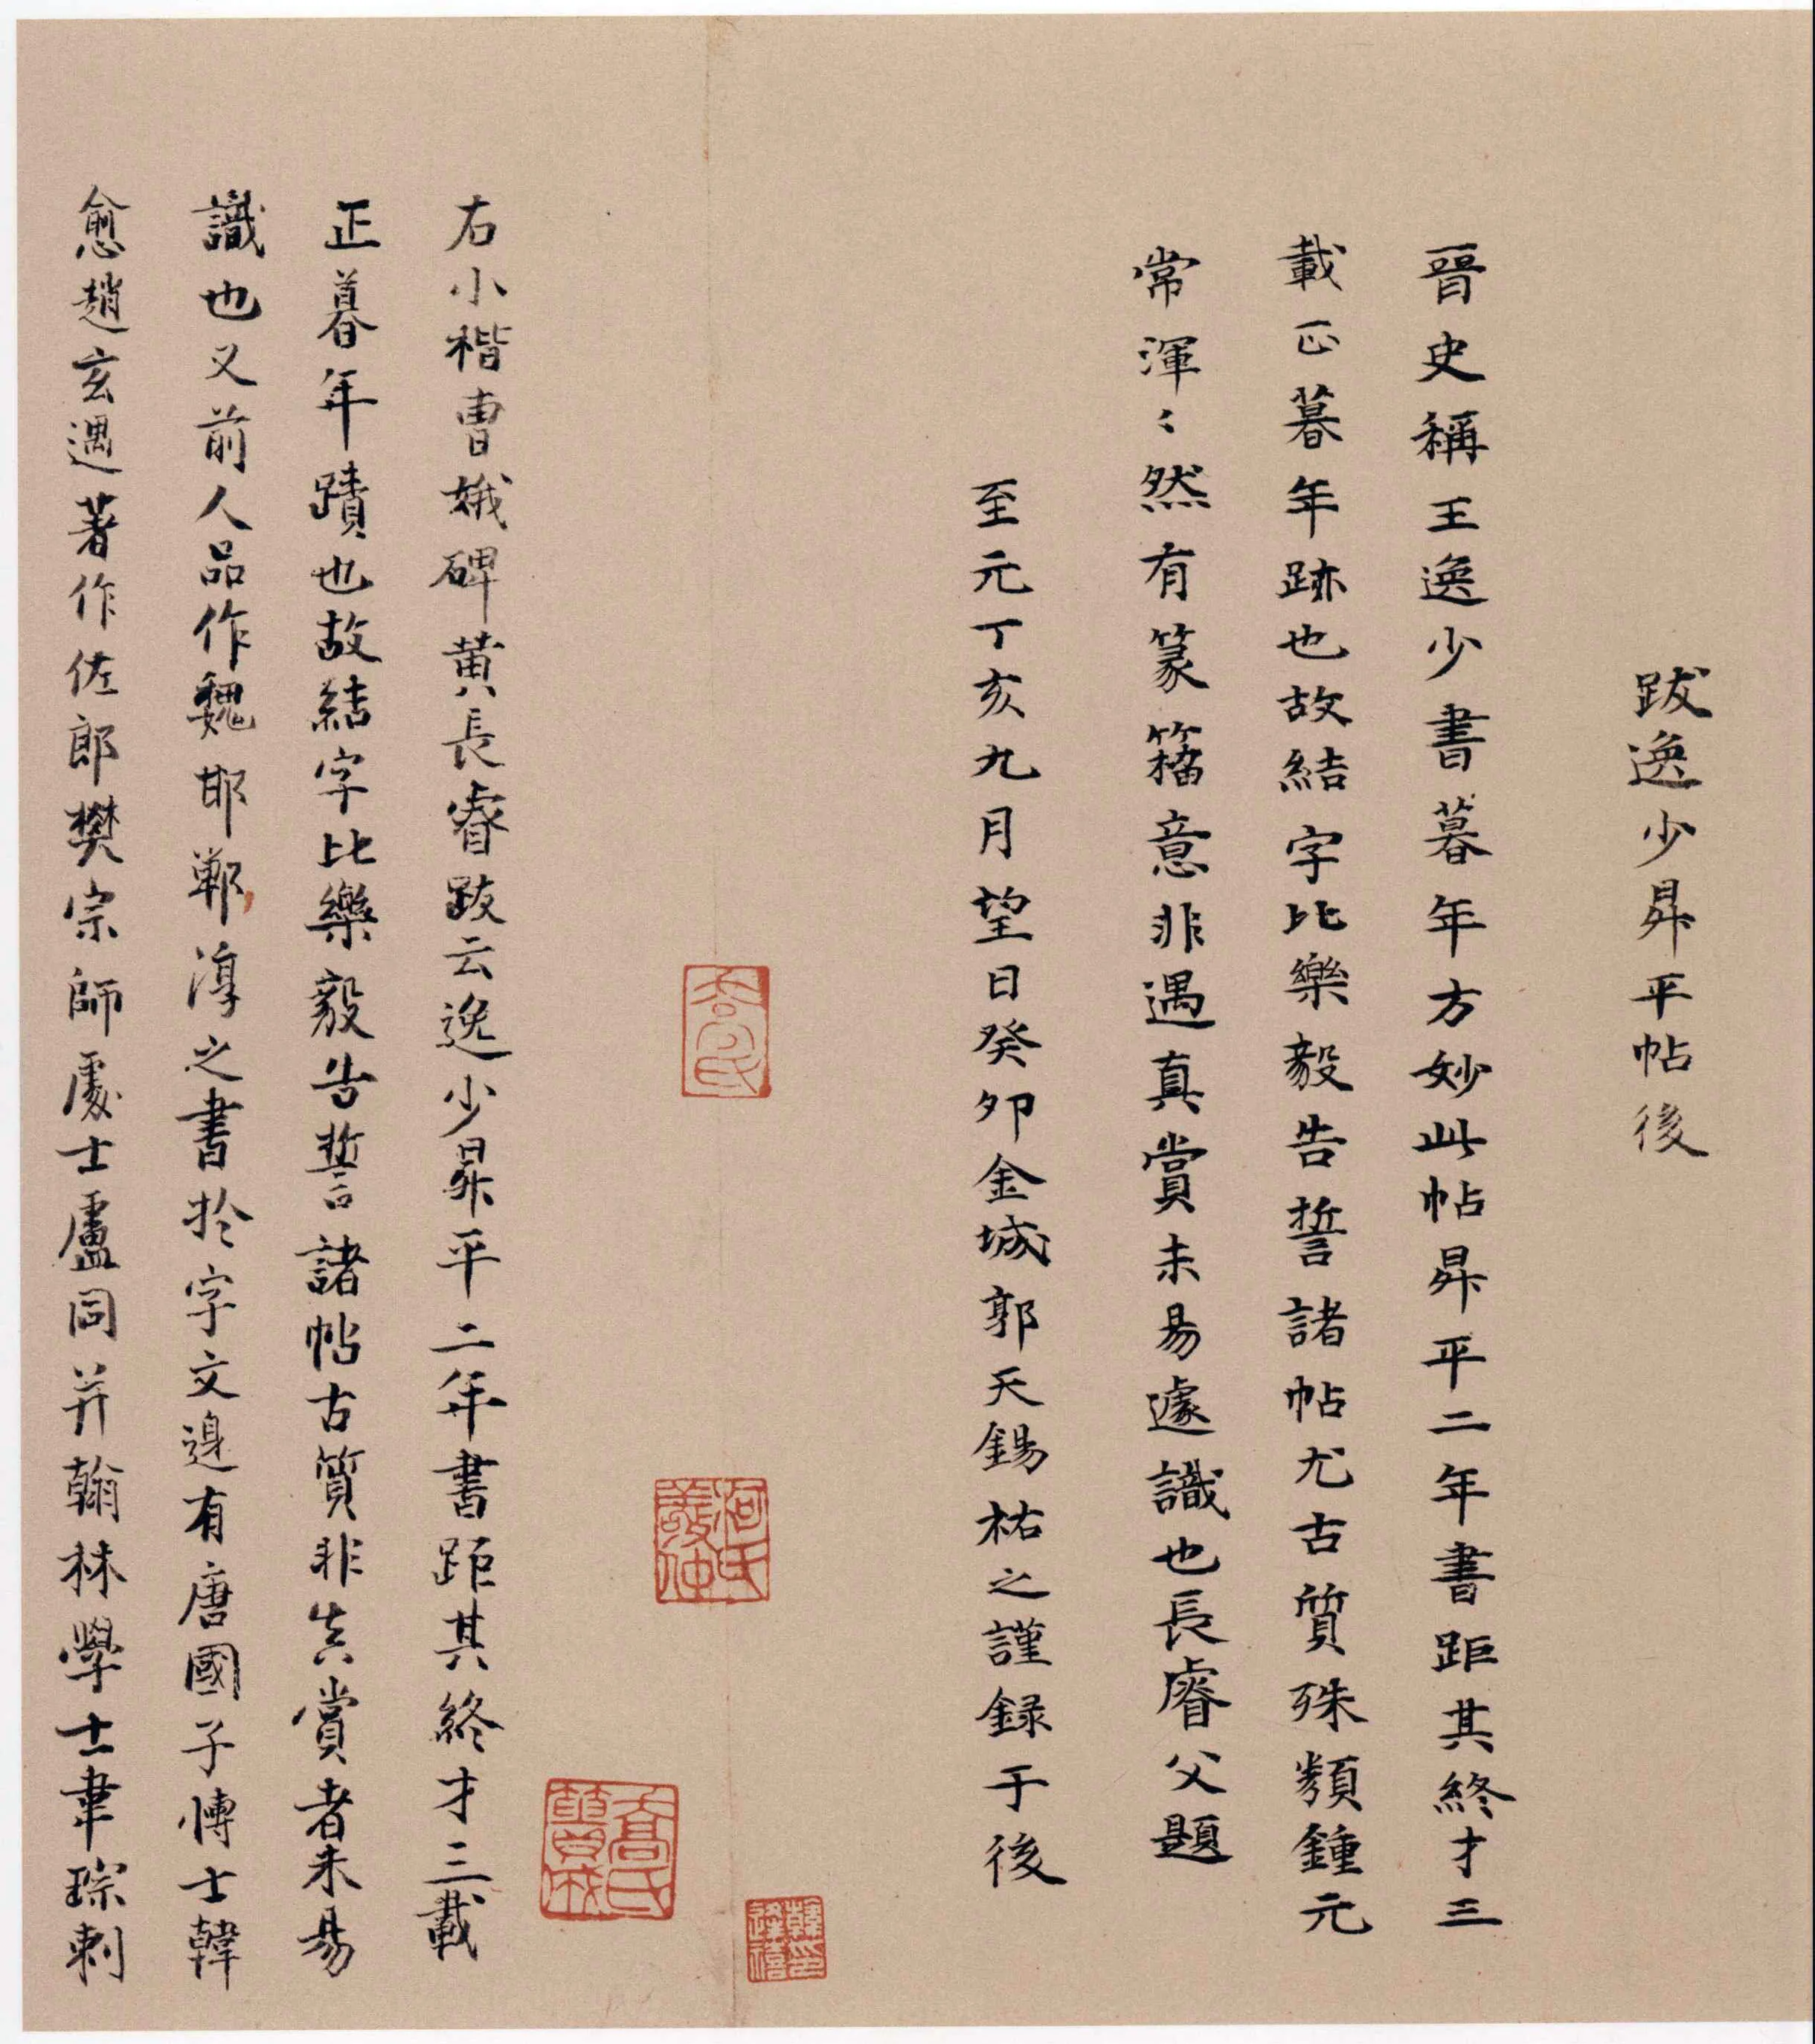 跋逸少昇平帖後
晉史稱王逸少書暮年方妙此帖昇平二年書距其終才三
載正暮年跡也故結字比樂毅告誓諸帖尤古質殊類鍾元
常渾〻然有篆籀意非遇真賞未易遽識也長睿父題
至元丁亥九月望日癸卯金城郭天錫祐之謹録于後
喬氏
韓逢禧印
右小楷曹娥碑黄長睿跋云逸少昇平二年書距其終才三載
正暮年蹟也故結字比樂毅告誓諸帖古質非真賞者未易
識也又前人品作魏邯鄲淳之書於字文邊有唐國子博士韓
愈趙玄遇著作佐郎樊宗師處士盧同并翰林學士韋琮刺